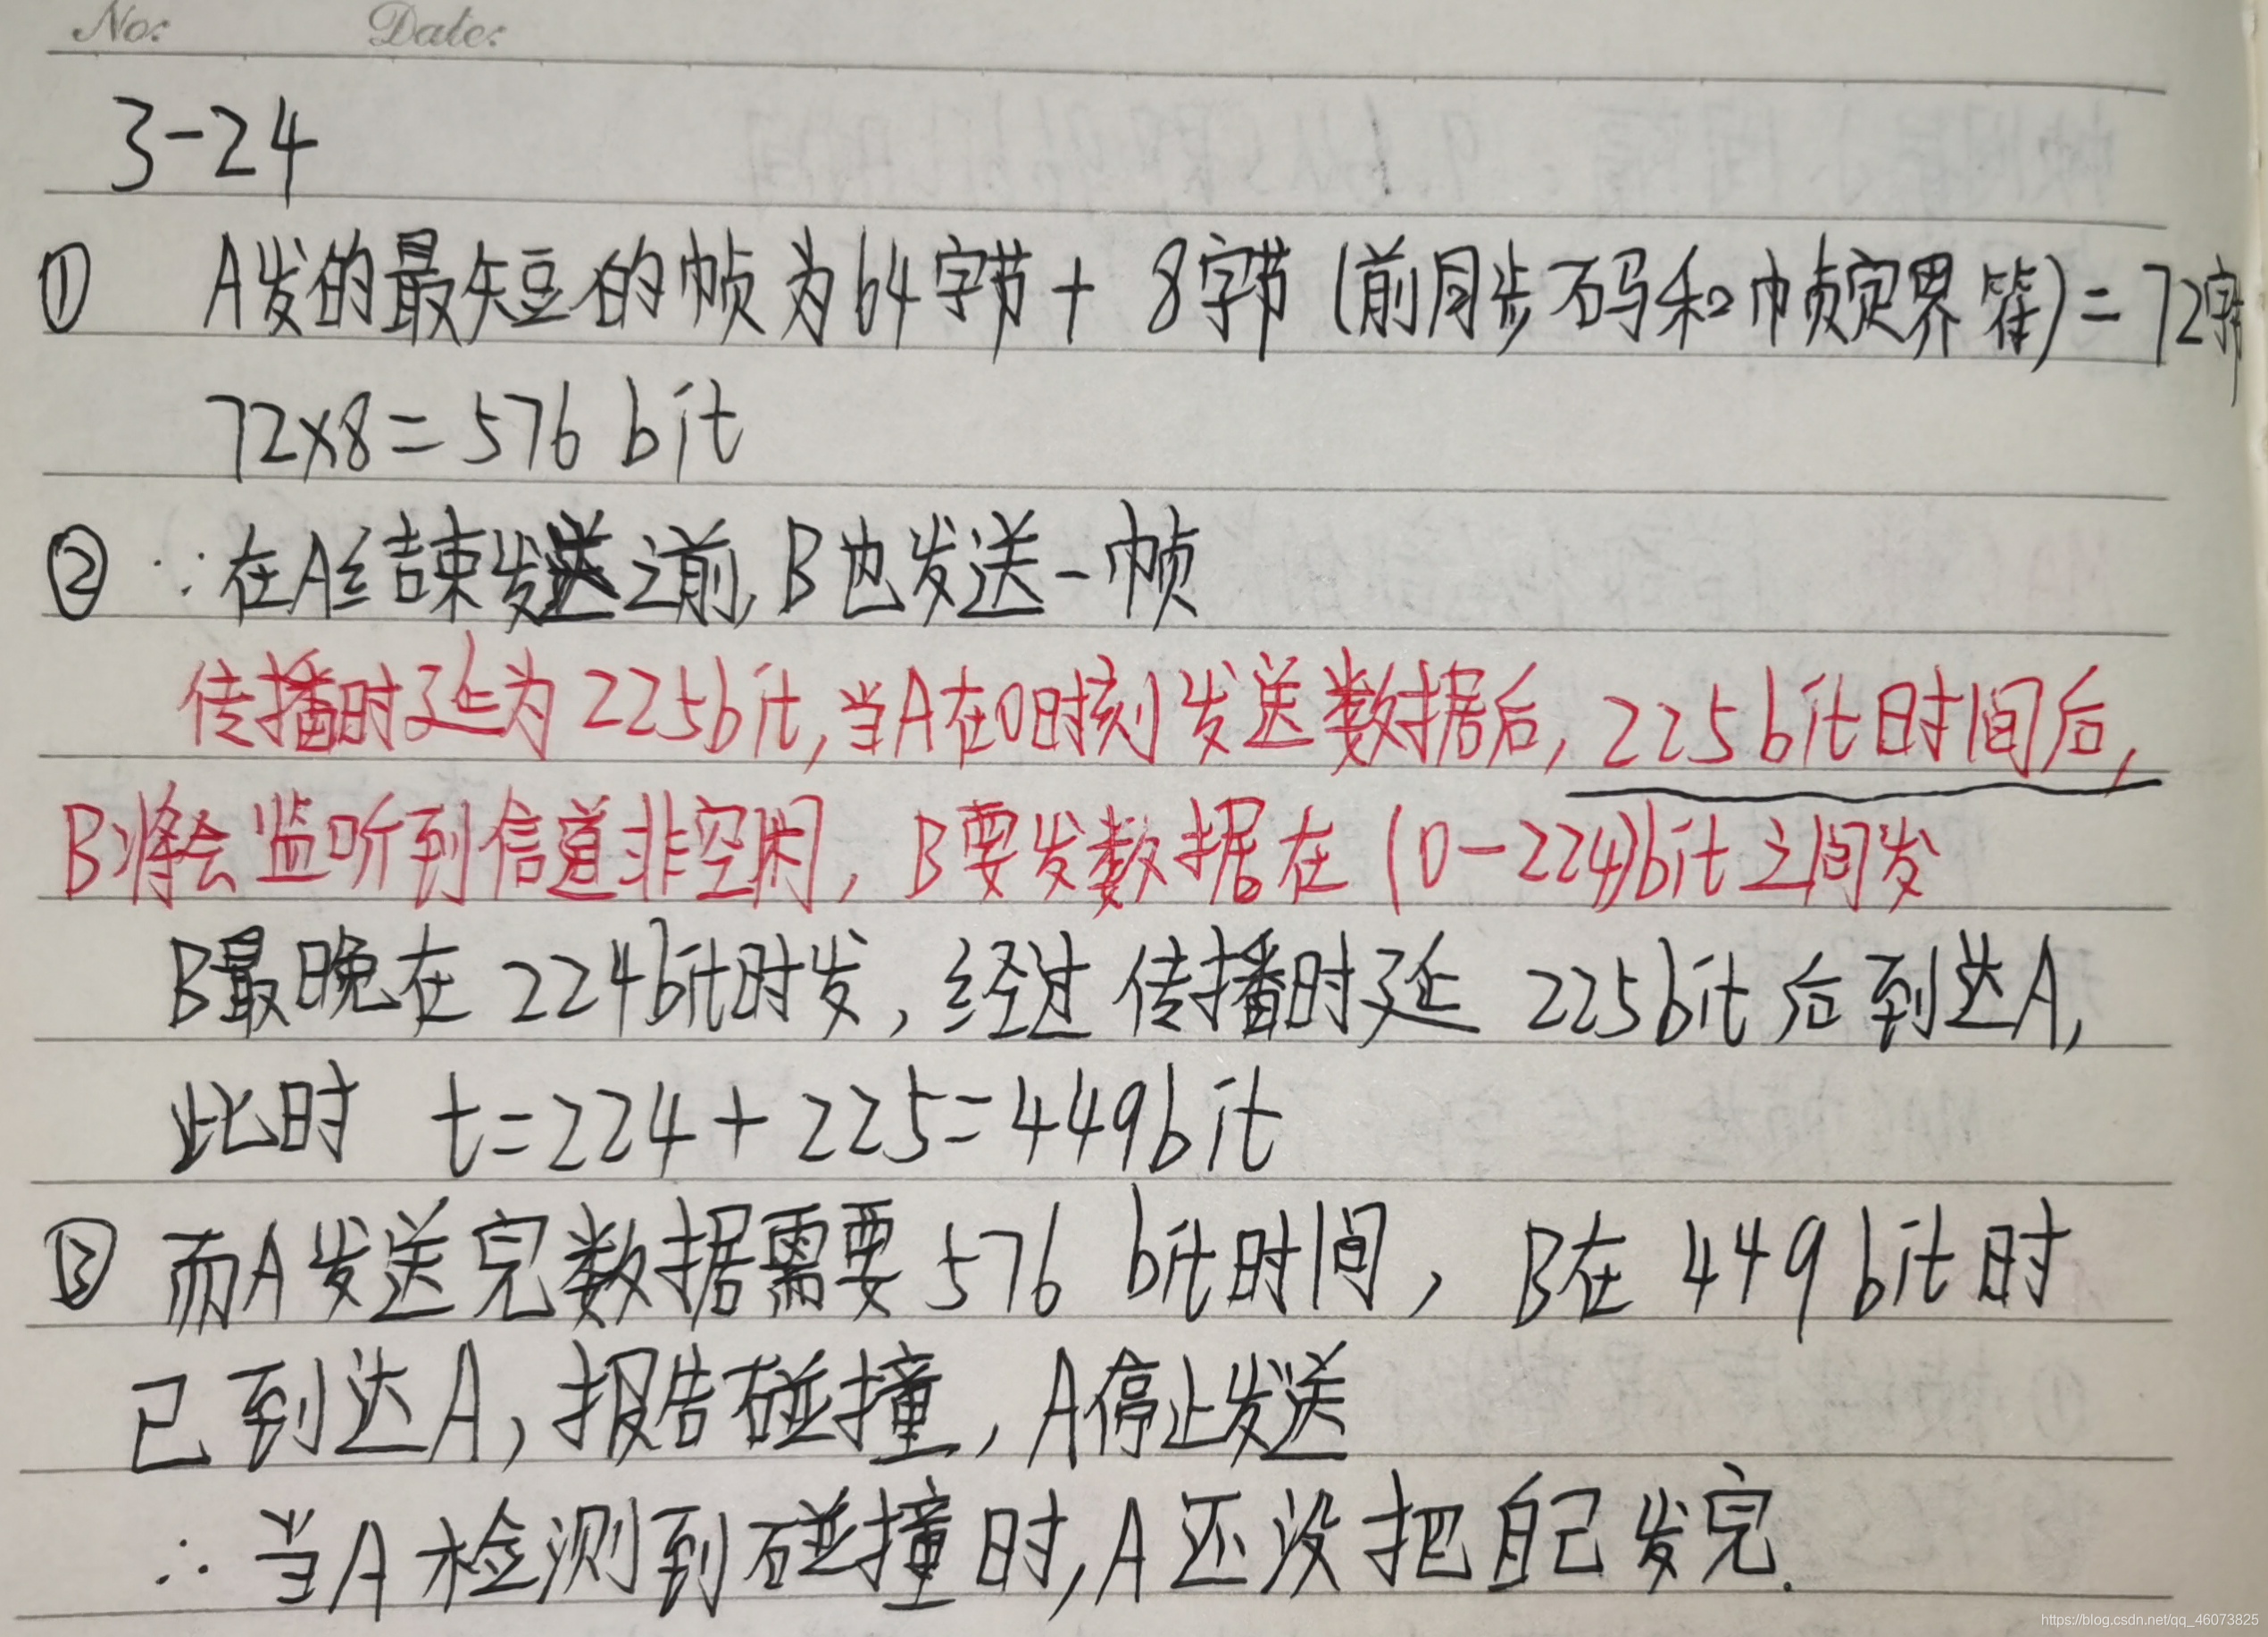 No: Date:
3-24
① A发的最短的帧为64字节+ 8字节(前同步码和帧定界符)=72字
72x8=576 bit
② ∵在A结束发送之前,B也发送一帧
传播时延为225bit,当A在0时刻发送数据后,225bit时间后,
B将会监听到信道非空闲,B要发数据在(0-224)bit之间发
B最晚在224bit时发,经过传播时延 225bit后到达A,
此时 t=224+225=449bit
③ 而A发送完数据需要576 bit时间,B在449bit时
已到达A,报告碰撞,A停止发送
∴当A检测到碰撞时,A还没把自己发完.
https://blog.csdn.net/qq_46073825